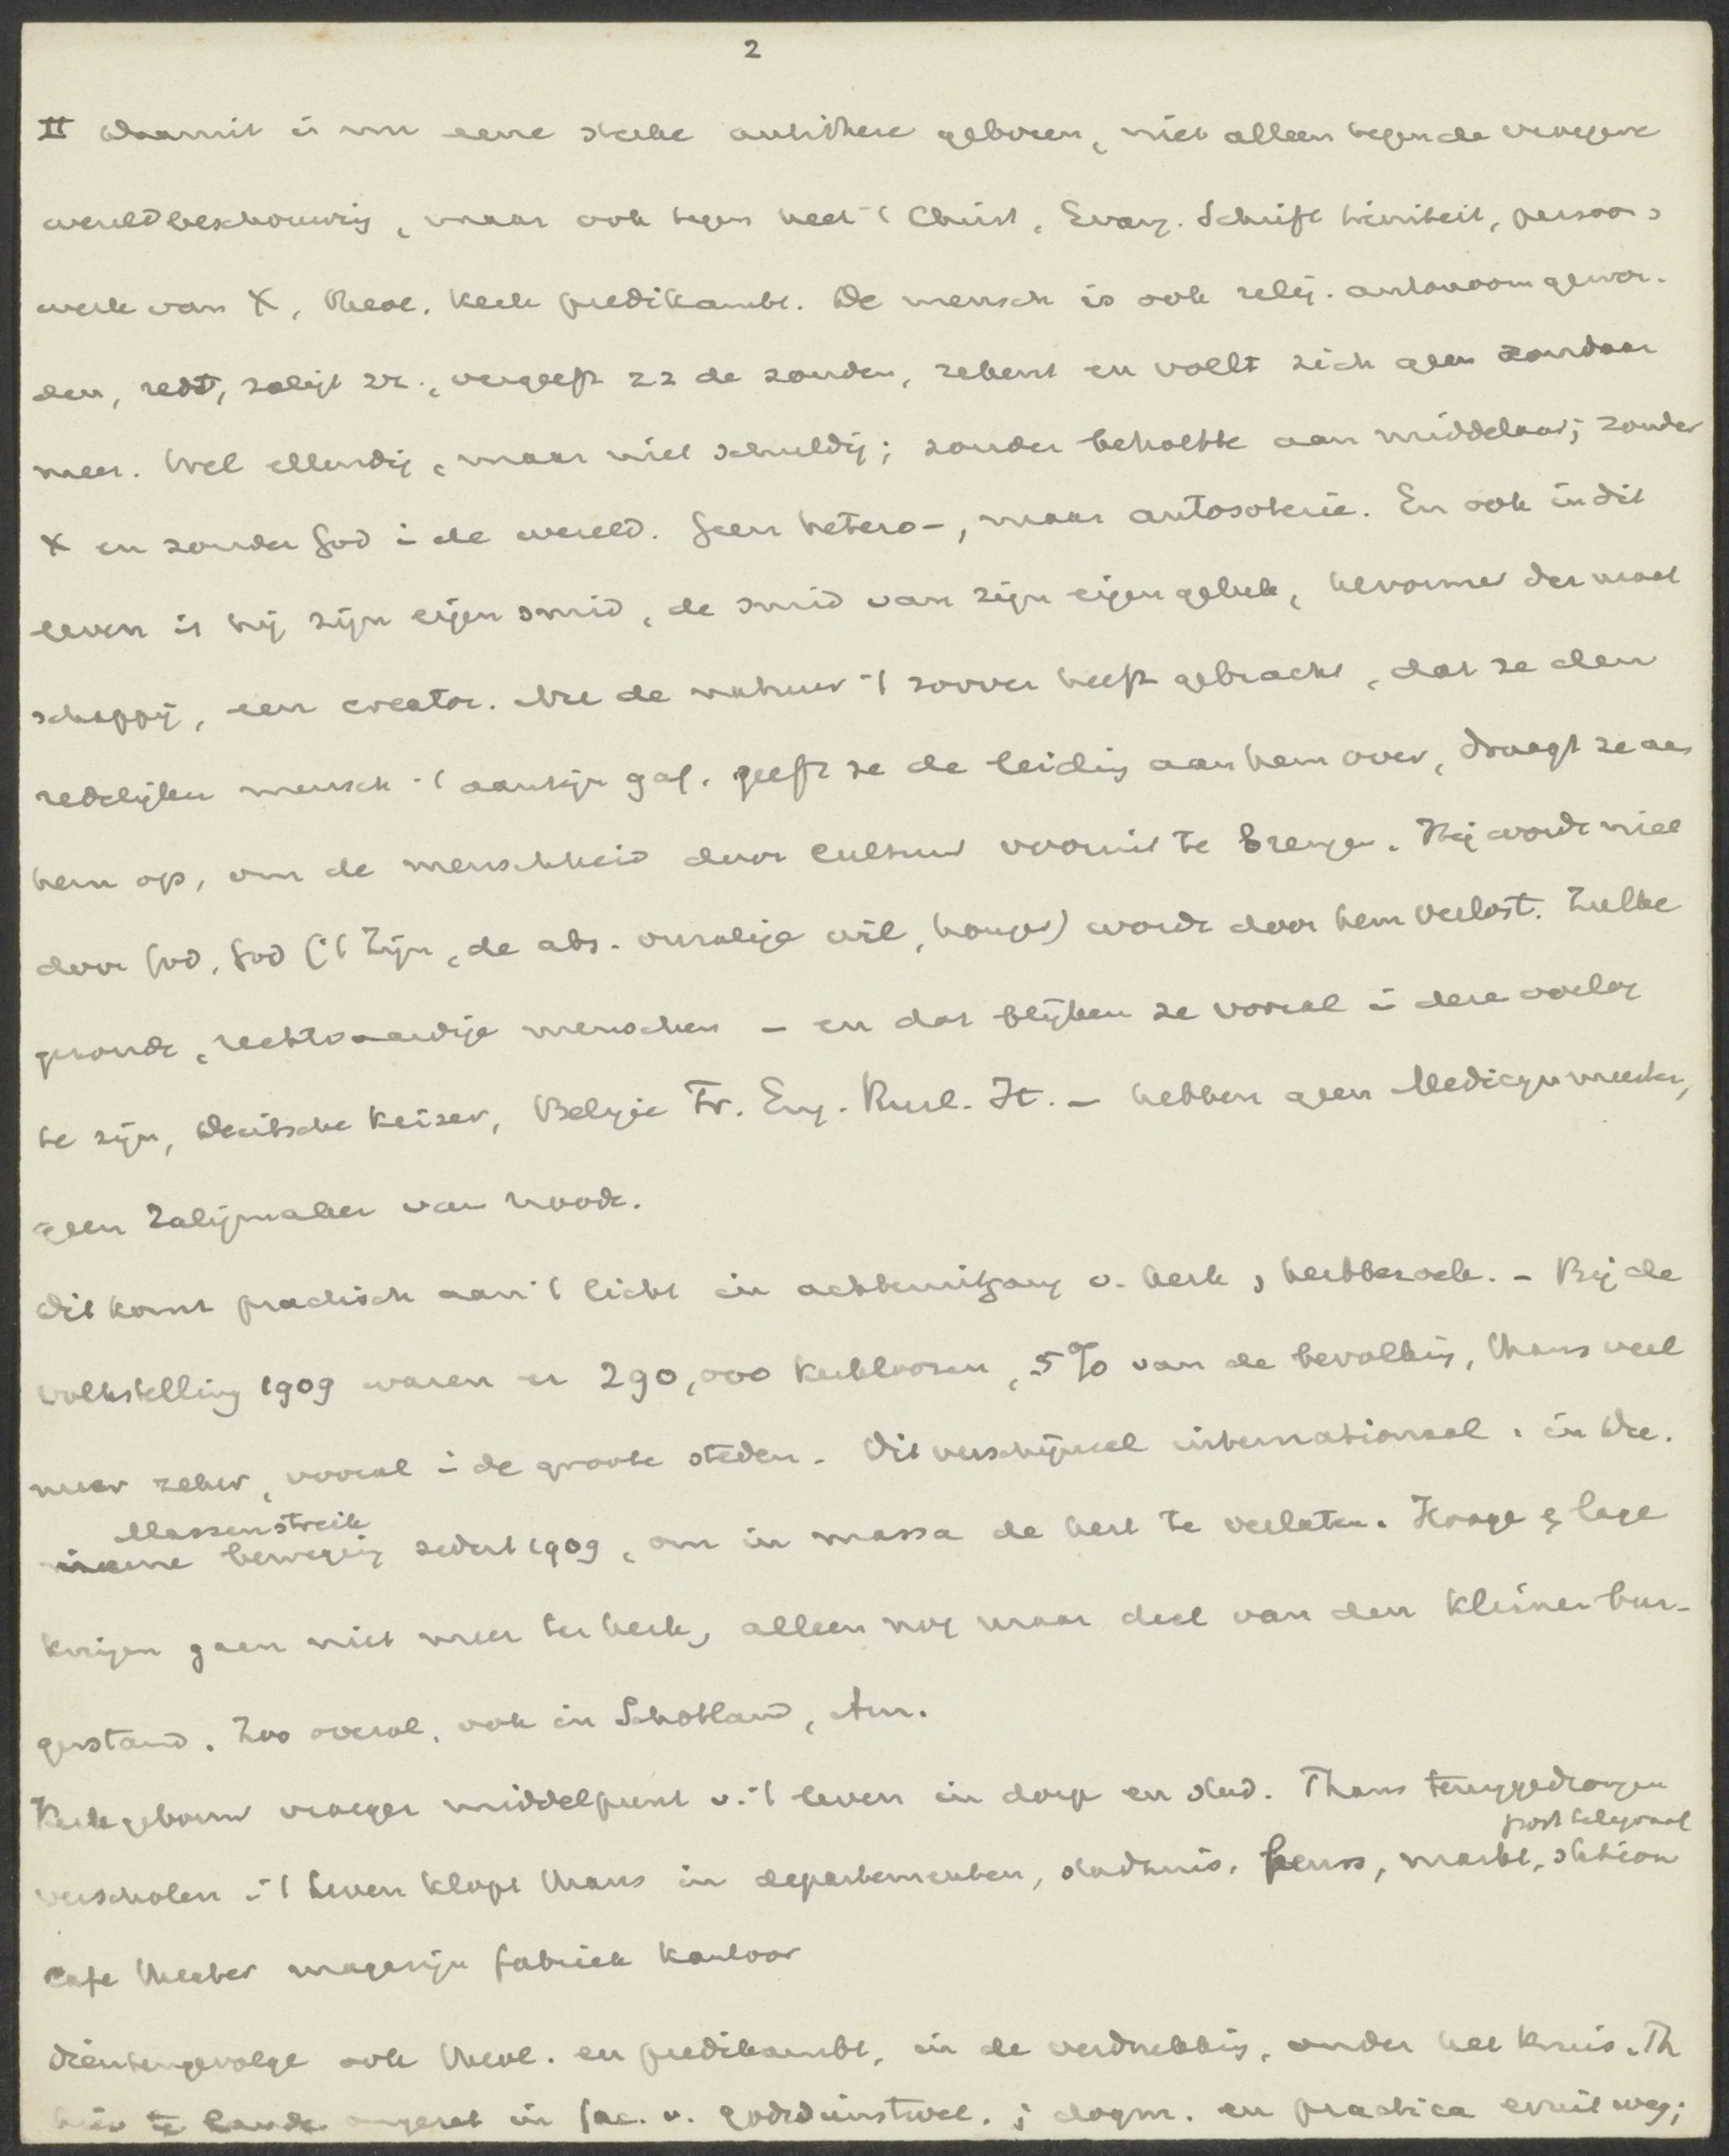 2
II Daarmit is nu eene sterke antithese geboren, niet alleen tegen de vroegere
wereldbeschouwing, maar ook tegen heel 't Christ, Evang. Schrift triniteit, persoon
werk van X, theol. Kerk predikambt. De mensch is ook relig. autonoom gewor-
den, redt, zaligt zz., vergeeft zz de zonden, rekent en voelt zich geen zondaar
meer. Wel ellendig, maar niet schuldig; zonder behoefte aan middelaar; zonder
X en zonder God i de wereld. Geen hetero-, maar autosoterie. En ook in dit
leven is hij zijn eigen smid, de smid van zijn eigen geluk, hervormer der maat
schappij, een creator. Nu de natuur 't zoover heeft gebracht, dat ze den
redelijken mensch 't aanzijn gaf, geeft ze de leiding aan hem over, draagt ze aan
hem op, om de menschheid door cultuur vooruit te brengen. Hij wordt niet
door God, God ('t Zijn, de abs. onzalige wil, honger) wordt door hem verlost. Zulke
gezonde, rechtvaardige menschen - en dat blijken ze vooral i deze oorlog
te zijn, Deutsche Keizer, Belgie Fr. Eng. Rusl. It. - hebben geen Medicijnmeester,
geen Zaligmaker van noode.
Dit komt practisch aan 't licht in achteruitgang v. kerk, kerkbezoek. - Bij de
volkstelling 1909 waren er 290,000 kerkloozen, 5% van de bevolking, thans veel
meer zeker, vooral i de groote steden. Dit verschijnsel internationaal. in De.
Massenstreik
beweging sedert 1909, om in massa de kerk te verlaten. Hooge & lage
kringen gaen niet meer ter kerk, alleen nog maar deel van den kleinen bur-
gerstand. Zoo overal, ook in Schotland, Am.
Kerkgebouw vroeger middelpunt v. 't leven in dorp en stad. Thans teruggedrongen
post telegraaf
verscholen 't leven klopt thans in departementen, stadhuis, beurs, markt, station
café theater magazijn fabriek kantoor
dientengevolge ook theol. en predikambt, in de verdrukking, onder het kruis. Th
hier te lande omgezet in fac. v. godsdienstwet. ; dogm. en practica eruit weg;